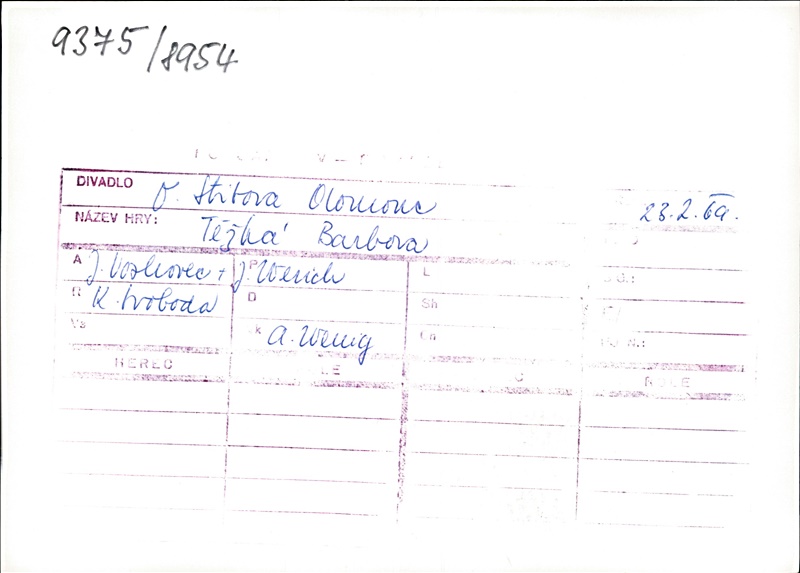 9375/8954
DIVADLO O. Stibora Olomouc 23.2.69.
NÁZEV HRY: Těžká Barbora
A J. Voskovec + J. Werich L
R K. Svoboda D Sh
Vs k A. Wenig
HEREC ROLE